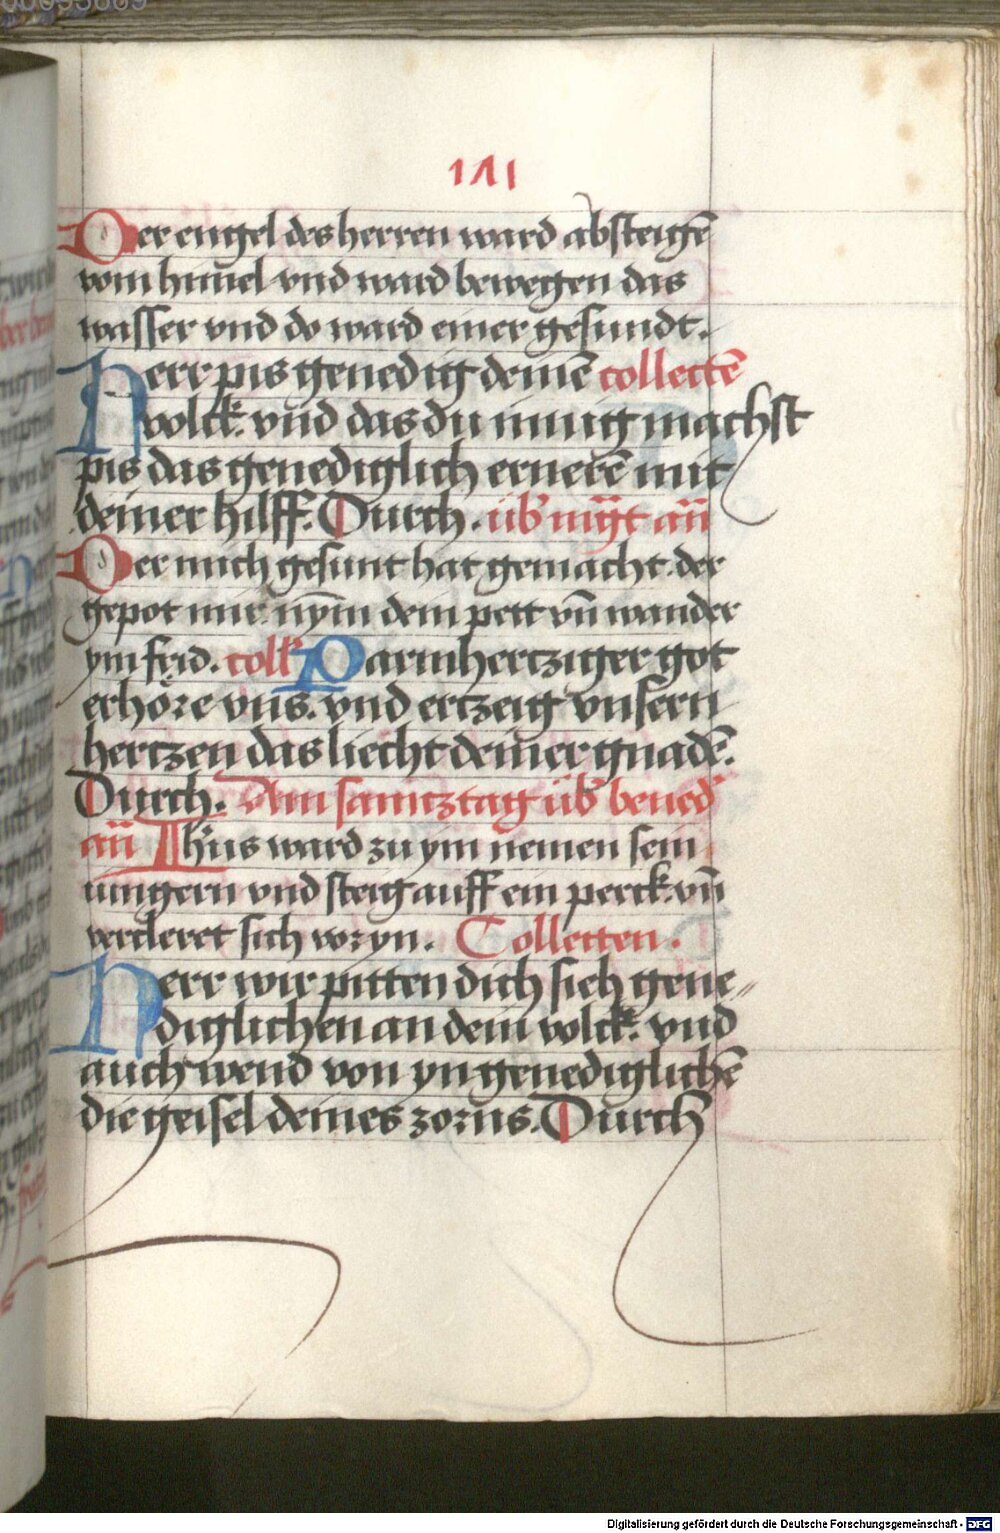 171
Der engel des herren ward absteigē
vom himel vnd ward bewegen das
wasser vnd do ward einer gesundt.
Herr pis genedig deinē collectē
volck. vnd das du innig machst
pis das genediglich ernerē mit
deiner hilff. Durch. üb mḡt an̄
Der mich gesunt hat gemacht. der
gepot mir nym dein pett vn̄ wander
ym frid. coll Parmhertziger got
erhöre vns. vnd ertzeig vnsern
hertzen das liecht deiner gnadē.
Durch. Am samtztag üb bened
an̄ Ihūs ward zu ym nemen sein
iungern vnd steig auff ein perck. vn̄
vercleret sich vor yn. Collecten.
Herr wir pitten dich sieh gene⸗
diglichen an dein volck. vnd
auch wend von yn genediglichē
die geisel deines zorns. Durch
Digitalisierung gefördert durch die Deutsche Forschungsgemeinschaft - DFG